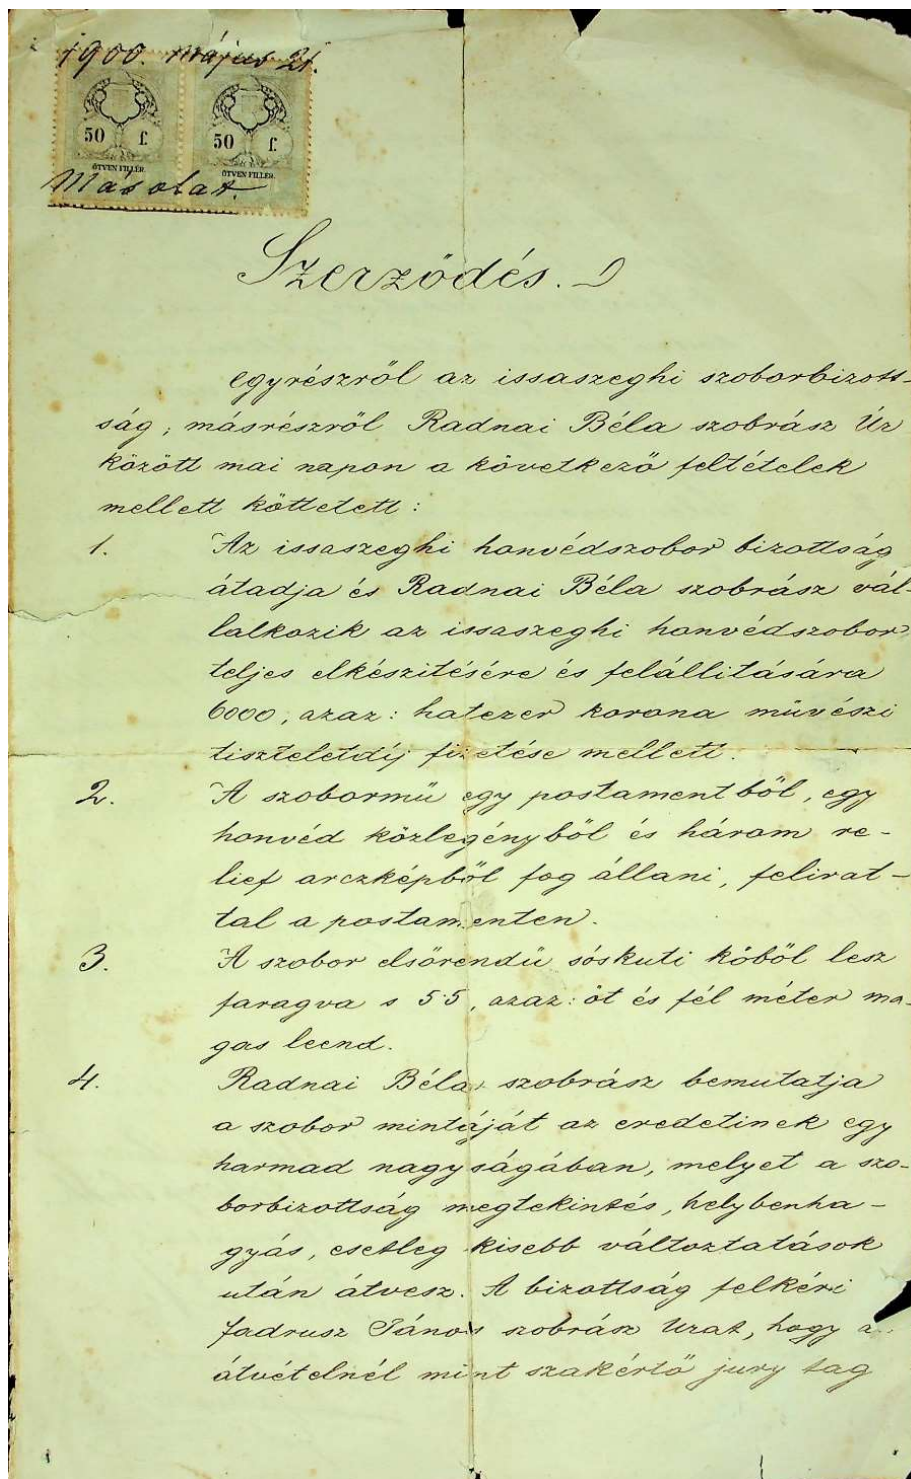 1900. május 21.
50 f. 50 f.
ÖTVEN FILLÉR. ÖTVEN FILLÉR.
Másolat.
Szerződés.
egyrészről az issaszeghi szoborbizott-
ság, másrészről Radnai Béla szobrász Úr
között mai napon a következő feltételek
mellett köttetett:
1. Az issaszeghi honvédszobor bizottság
átadja és Radnai Béla szobrász vál-
lalkozik az issaszeghi honvédszobor
teljes elkészitésére és felállitására
6000, azaz: hatezer korona müvészi
tiszteletdíj fizetése mellett.
2. A szobormü egy postamentből, egy
honvéd közlegényből és három re-
lief arczképből fog állani, felirat-
tal a postamenten.
3. A szobor elsőrendü sóskuti kőből lesz
faragva s 5·5, azaz: öt és fél méter ma-
gas leend.
4. Radnai Béla szobrász bemutatja
a szobor mintáját az eredetinek egy
harmad nagyságában, melyet a szo-
borbizottság megtekintés, helybenha-
gyás, esetleg kisebb változtatások
után átvesz. A bizottság felkéri
Fadrusz János szobrász Urat, hogy a
átvételnél mint szakértő jury tag